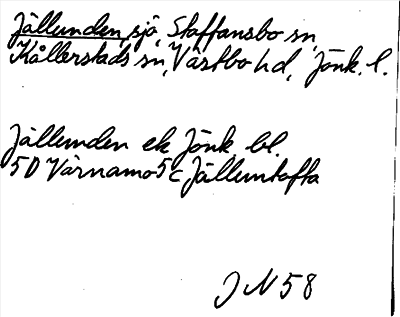 Jällunden, sjö, Staffansbo sn,
Kållerstads sn, Västbo hd, Jönk. l.
Jällunden ek Jönk bl.
5D Värnamo 5c Jälluntofta
J N 58